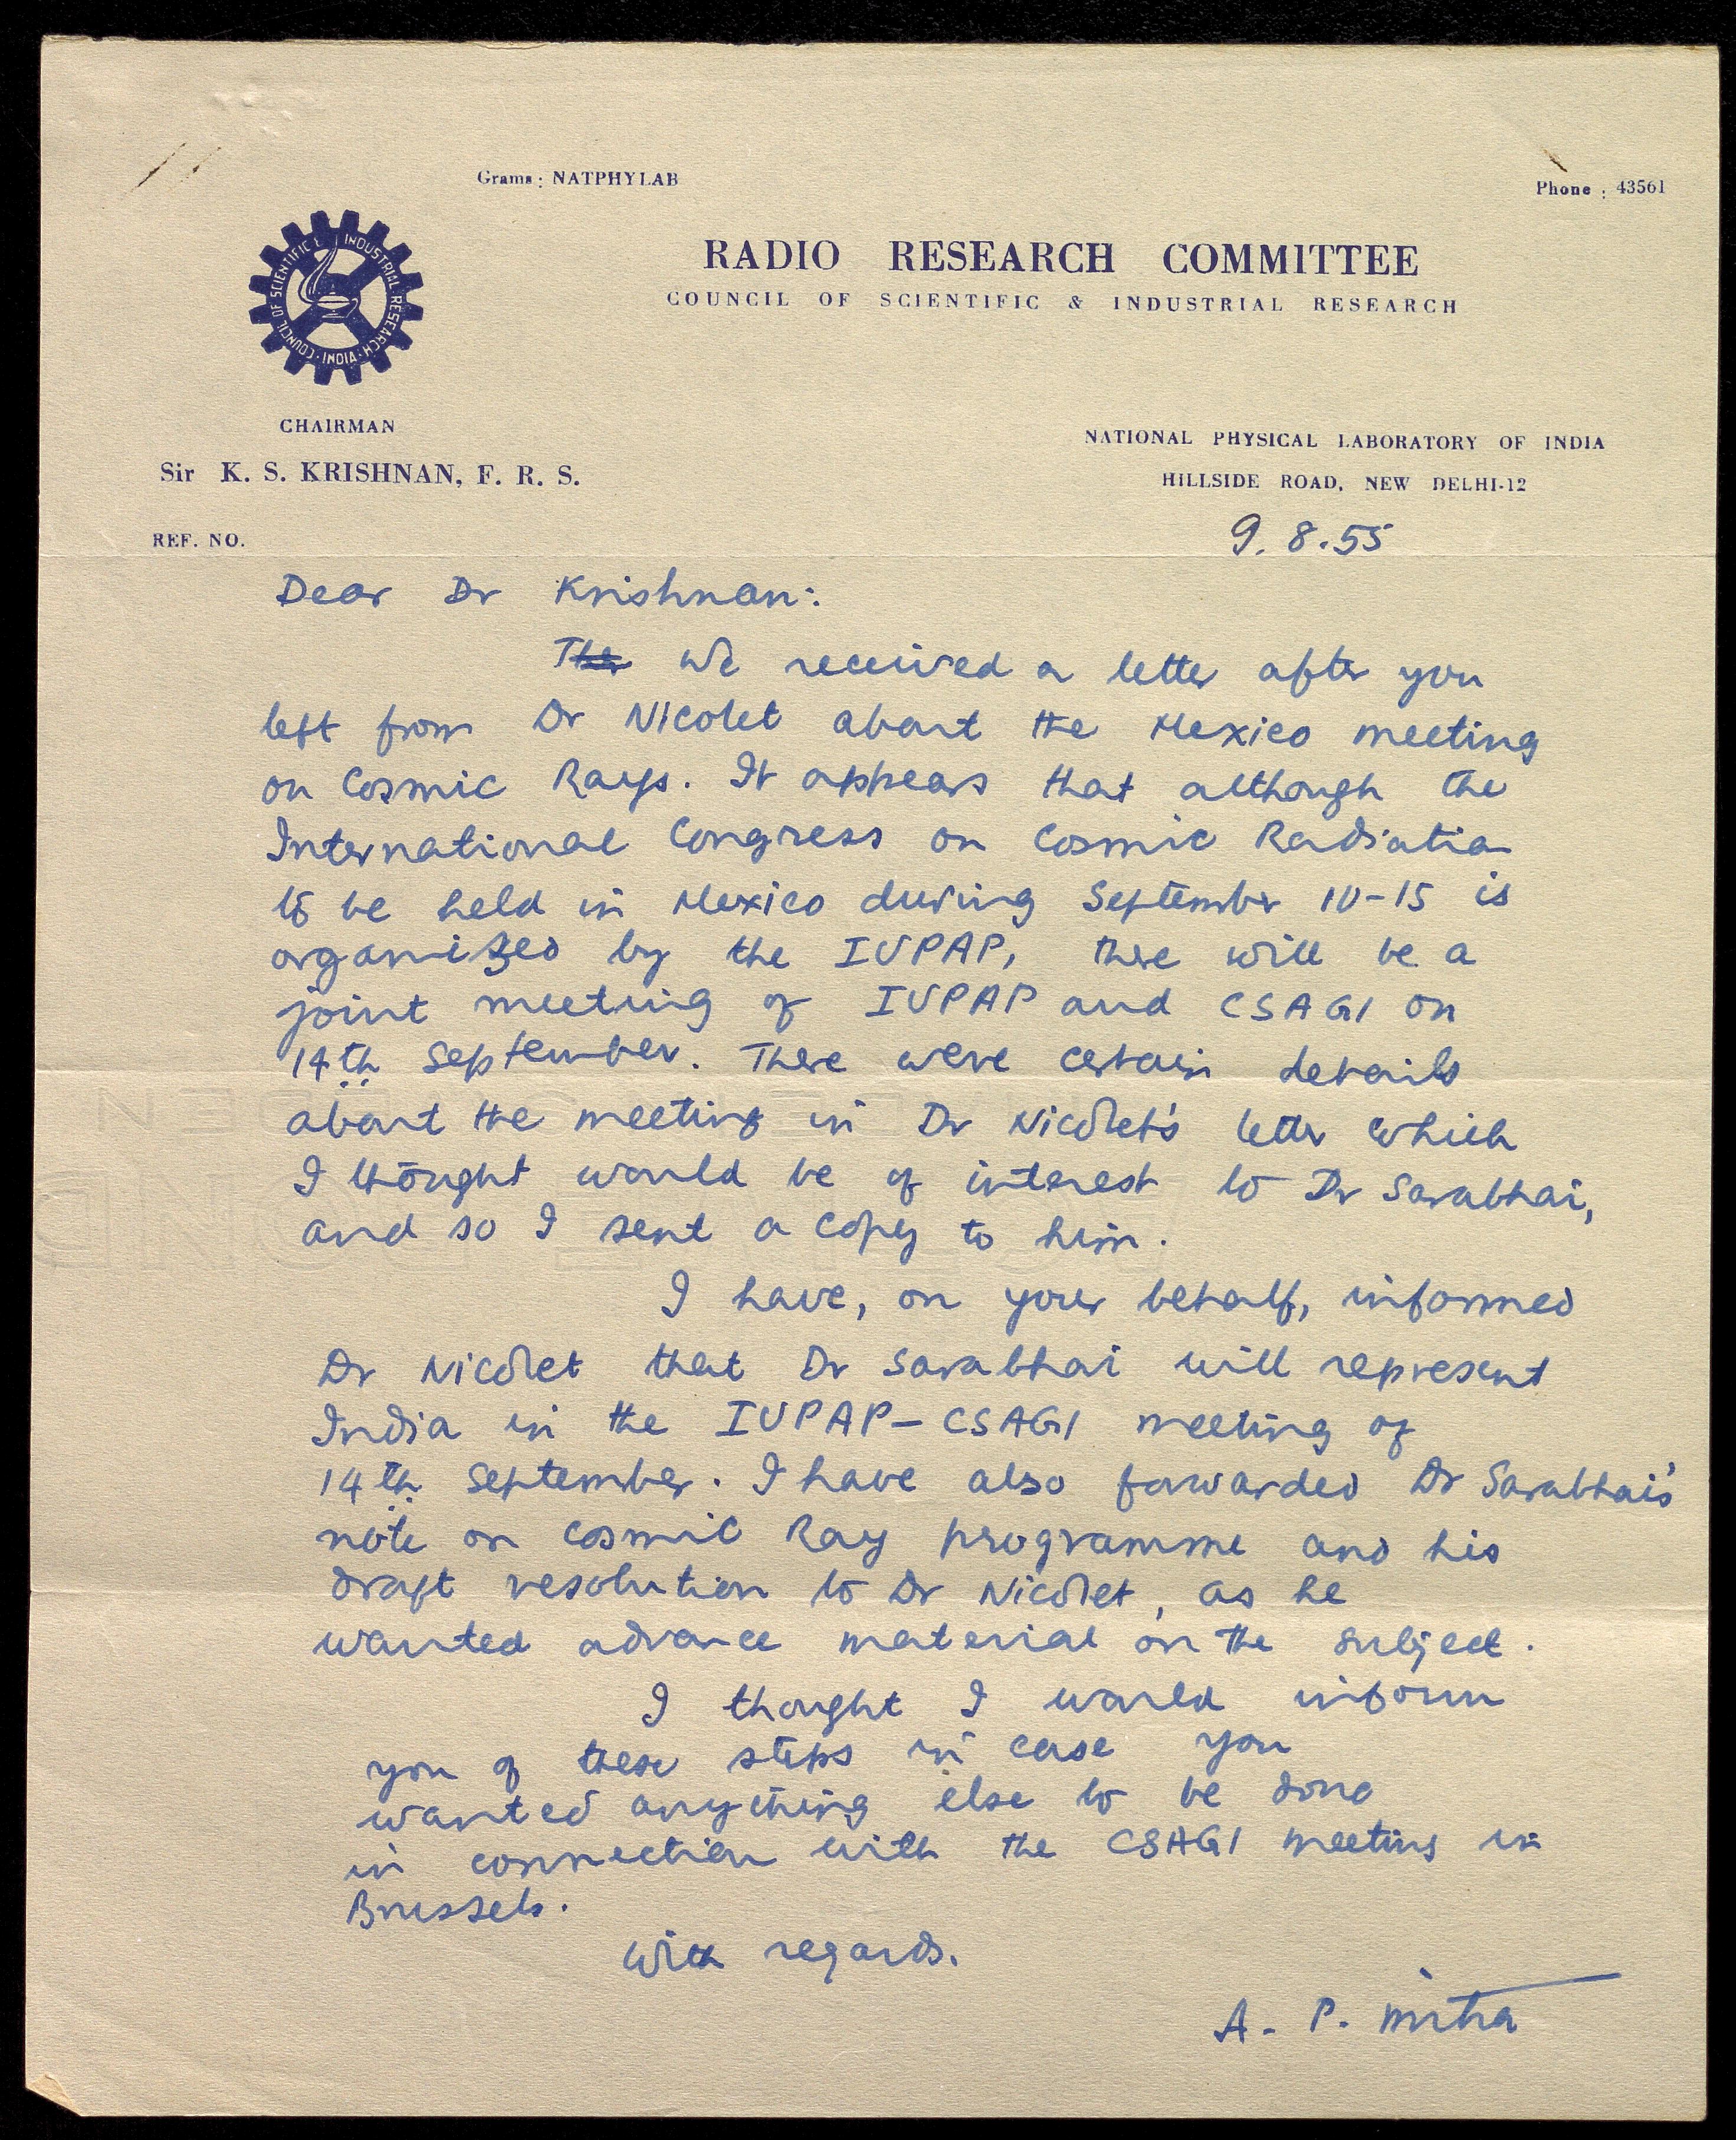 Grams : NATPHYLAB
Phone : 43561
COUNCIL OF SCIENTIFIC & INDUSTRIAL RESEARCH · INDIA ·
RADIO RESEARCH COMMITTEE
COUNCIL OF SCIENTIFIC & INDUSTRIAL RESEARCH
CHAIRMAN
Sir K. S. KRISHNAN, F. R. S.
NATIONAL PHYSICAL LABORATORY OF INDIA
HILLSIDE ROAD, NEW DELHI-12
REF. NO.
9. 8. 55
Dear Dr Krishnan:
The We received a letter after you
left from Dr Nicolet about the Mexico meeting
on Cosmic Rays. It appears that although the
International Congress on Cosmic Radiation
to be held in Mexico during September 10-15 is
organized by the IUPAP, there will be a
joint meeting of IUPAP and CSAGI on
14th September. There were certain details
about the meeting in Dr Nicolet's letter which
I thought would be of interest to Dr Sarabhai,
and so I sent a copy to him.
I have, on your behalf, informed
Dr Nicolet that Dr Sarabhai will represent
India in the IUPAP-CSAGI meeting of
14th September. I have also forwarded Dr Sarabhai's
note on Cosmic Ray programme and his
draft resolution to Dr Nicolet, as he
wanted advance material on the subject.
I thought I would inform
you of these steps in case you
wanted anything else to be done
in connection with the CSAGI meeting in
Brussels.
With regards.
A. P. Mitra